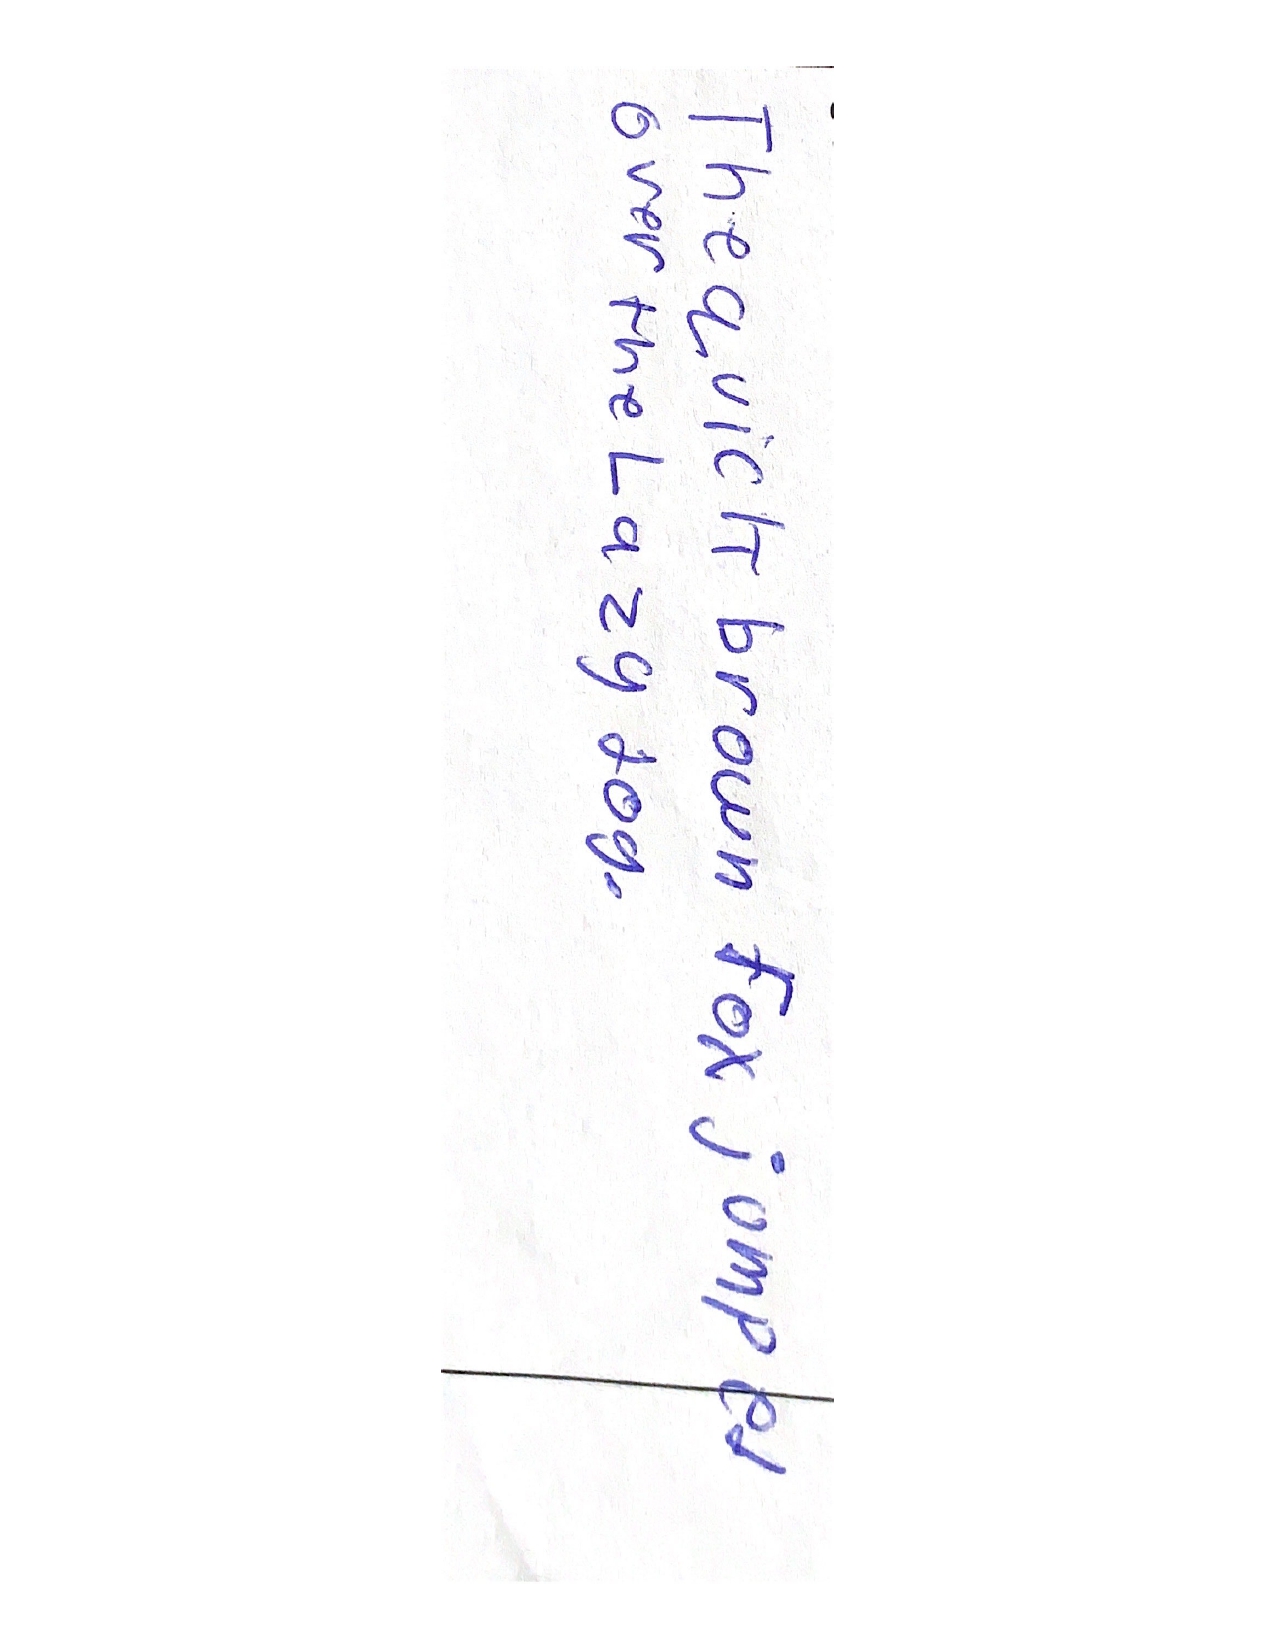 The quick brown fox jomped
over the Lazy dog.